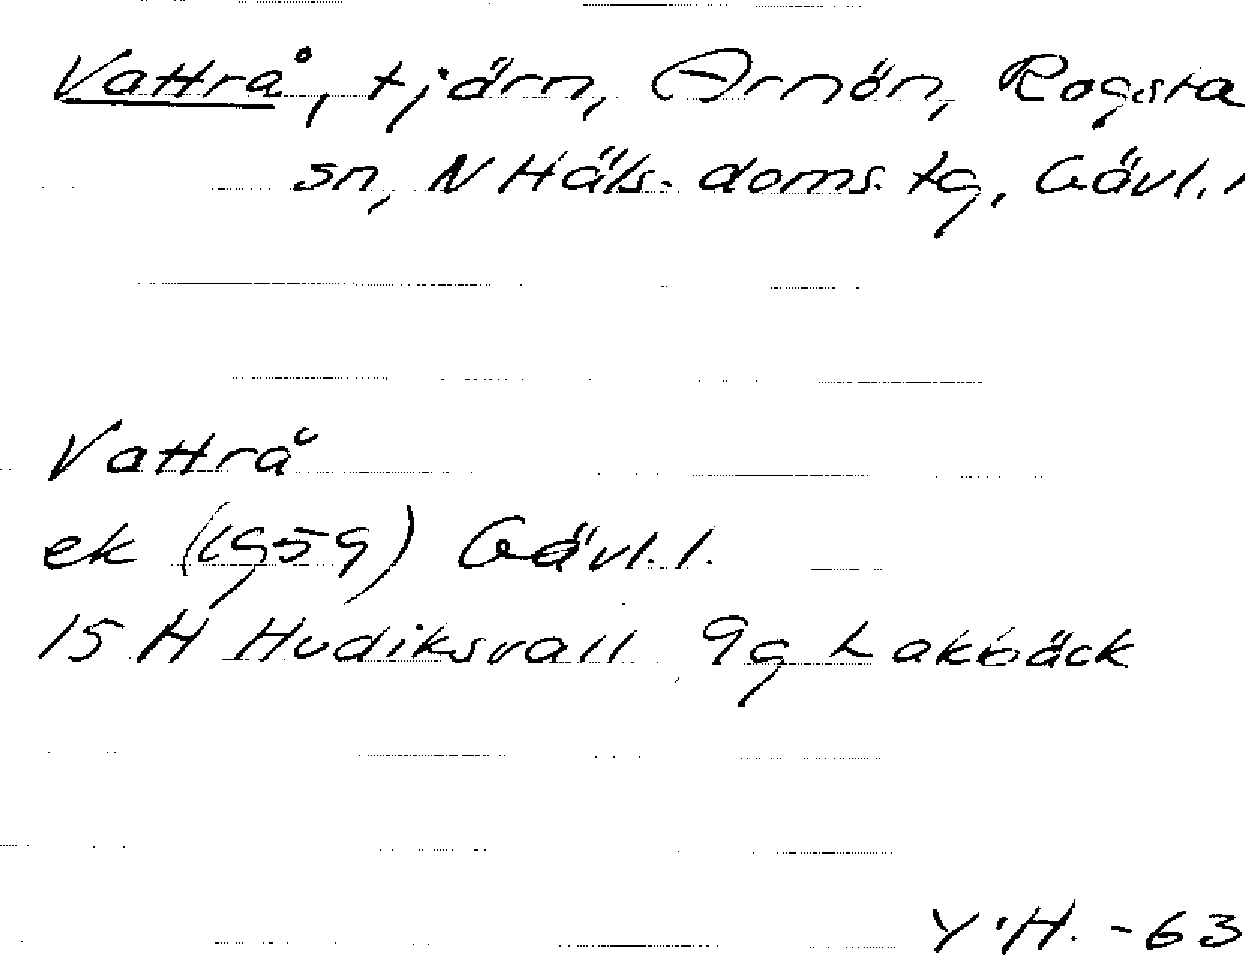 Vattrå, tjärn, Arnön, Rogsta
sn, N Häls. doms. tg, Gävl. l
Vattrå
ek (1959) Gävl. l.
15 H Hudiksvall 9g Lakbäck
Y.H. -63